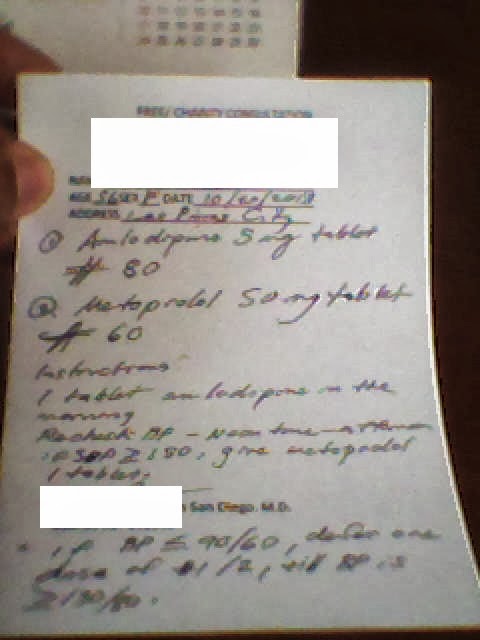 FREE/ CHARITY CONSULTATION
AGE 56 SEX F DATE 10/20/2018
ADDRESS Las Pinas City
① Amlodipine 5 mg tablet
# 80
② Metoprolol 50 mg tablet
# 60
Instructions
1 tablet amlodipine in the
morning
Recheck BP - Noon time
if SBP ≥ 130, give metoprolol
1 tablet;
San Diego, M.D.
* if BP ≤ 90/60, defer one
dose of #1/2, till BP is
≥ 130/80.